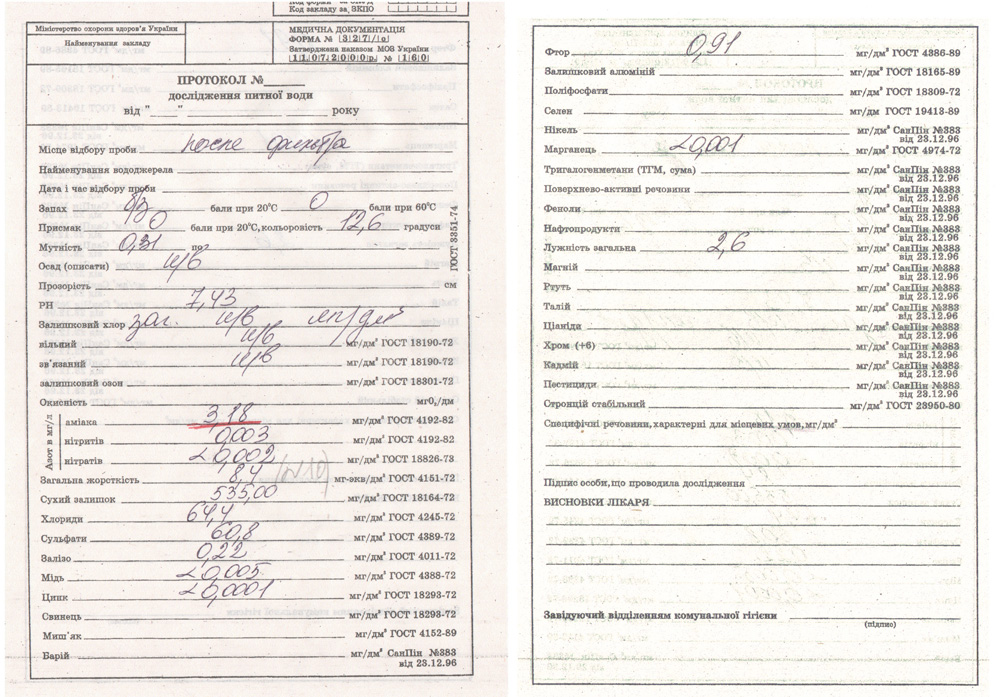 Код форми за ЗКУД
Код закладу за ЗКПО
Міністерство охорони здоров'я України
Найменування закладу
МЕДИЧНА ДОКУМЕНТАЦІЯ
ФОРМА № 327/о
Затверджена наказом МОЗ України
11072000р. № 160
ПРОТОКОЛ №
дослідження питної води
від " " року
Місце відбору проби после фильтра
Найменування вододжерела
Дата і час відбору проби
Запах бали при 20°С 0 бали при 60°С
Присмак 0 бали при 20°С, кольоровість 12,6 градуси
Мутність 0,31 по
ГОСТ 3351-74
Осад (описати) н/в
Прозорість см
РН 7,43
Залишковий хлор заг. н/в мг/дм³
вільний н/в мг/дм³ ГОСТ 18190-72
зв'язаний н/в мг/дм³ ГОСТ 18190-72
залишковий озон мг/дм³ ГОСТ 18301-72
Окисність мгО₂/дм
Азот в мг/л
аміака 3,18 мг/дм³ ГОСТ 4192-82
нітритів 0,003 мг/дм³ ГОСТ 4192-82
нітратів <0,002 мг/дм³ ГОСТ 18826-73
Загальна жорсткість 8,4 мг-экв/дм³ ГОСТ 4151-72
Сухий залишок 535,00 мг/дм³ ГОСТ 18164-72
Хлориди 64,4 мг/дм³ ГОСТ 4245-72
Сульфати 60,8 мг/дм³ ГОСТ 4389-72
Залізо 0,22 мг/дм³ ГОСТ 4011-72
Мідь <0,005 мг/дм³ ГОСТ 4388-72
Цинк <0,0001 мг/дм³ ГОСТ 18293-72
Свинець мг/дм³ ГОСТ 18293-72
Миш'як мг/дм³ ГОСТ 4152-89
Барій мг/дм³ СанПін №383
від 23.12.96
Фтор 0,91 мг/дм³ ГОСТ 4386-89
Залишковий алюміній мг/дм³ ГОСТ 18165-89
Поліфосфати мг/дм³ ГОСТ 18309-72
Селен мг/дм³ ГОСТ 19413-89
Нікель мг/дм³ СанПін №383
від 23.12.96
Марганець <0,001 мг/дм³ ГОСТ 4974-72
Тригалогенметани (ТГМ, сума) мг/дм³ СанПін №383
від 23.12.96
Поверхнево-активні речовини мг/дм³ СанПін №383
від 23.12.96
Феноли мг/дм³ СанПін №383
від 23.12.96
Нафтопродукти мг/дм³ СанПін №383
від 23.12.96
Лужність загальна 2,6 мг/дм³ СанПін №383
від 23.12.96
Магній мг/дм³ СанПін №383
від 23.12.96
Ртуть мг/дм³ СанПін №383
від 23.12.96
Талій мг/дм³ СанПін №383
від 23.12.96
Ціаніди мг/дм³ СанПін №383
від 23.12.96
Хром (+6) мг/дм³ СанПін №383
від 23.12.96
Кадмій мг/дм³ СанПін №383
від 23.12.96
Пестициди мг/дм³ СанПін №383
від 23.12.96
Стронцій стабільний мг/дм³ ГОСТ 23950-80
Специфічні речовини, характерні для місцевих умов, мг/дм³
Підпис особи, що проводила дослідження
ВИСНОВКИ ЛІКАРЯ
Завідуючий відділенням комунальної гігієни
(підпис)